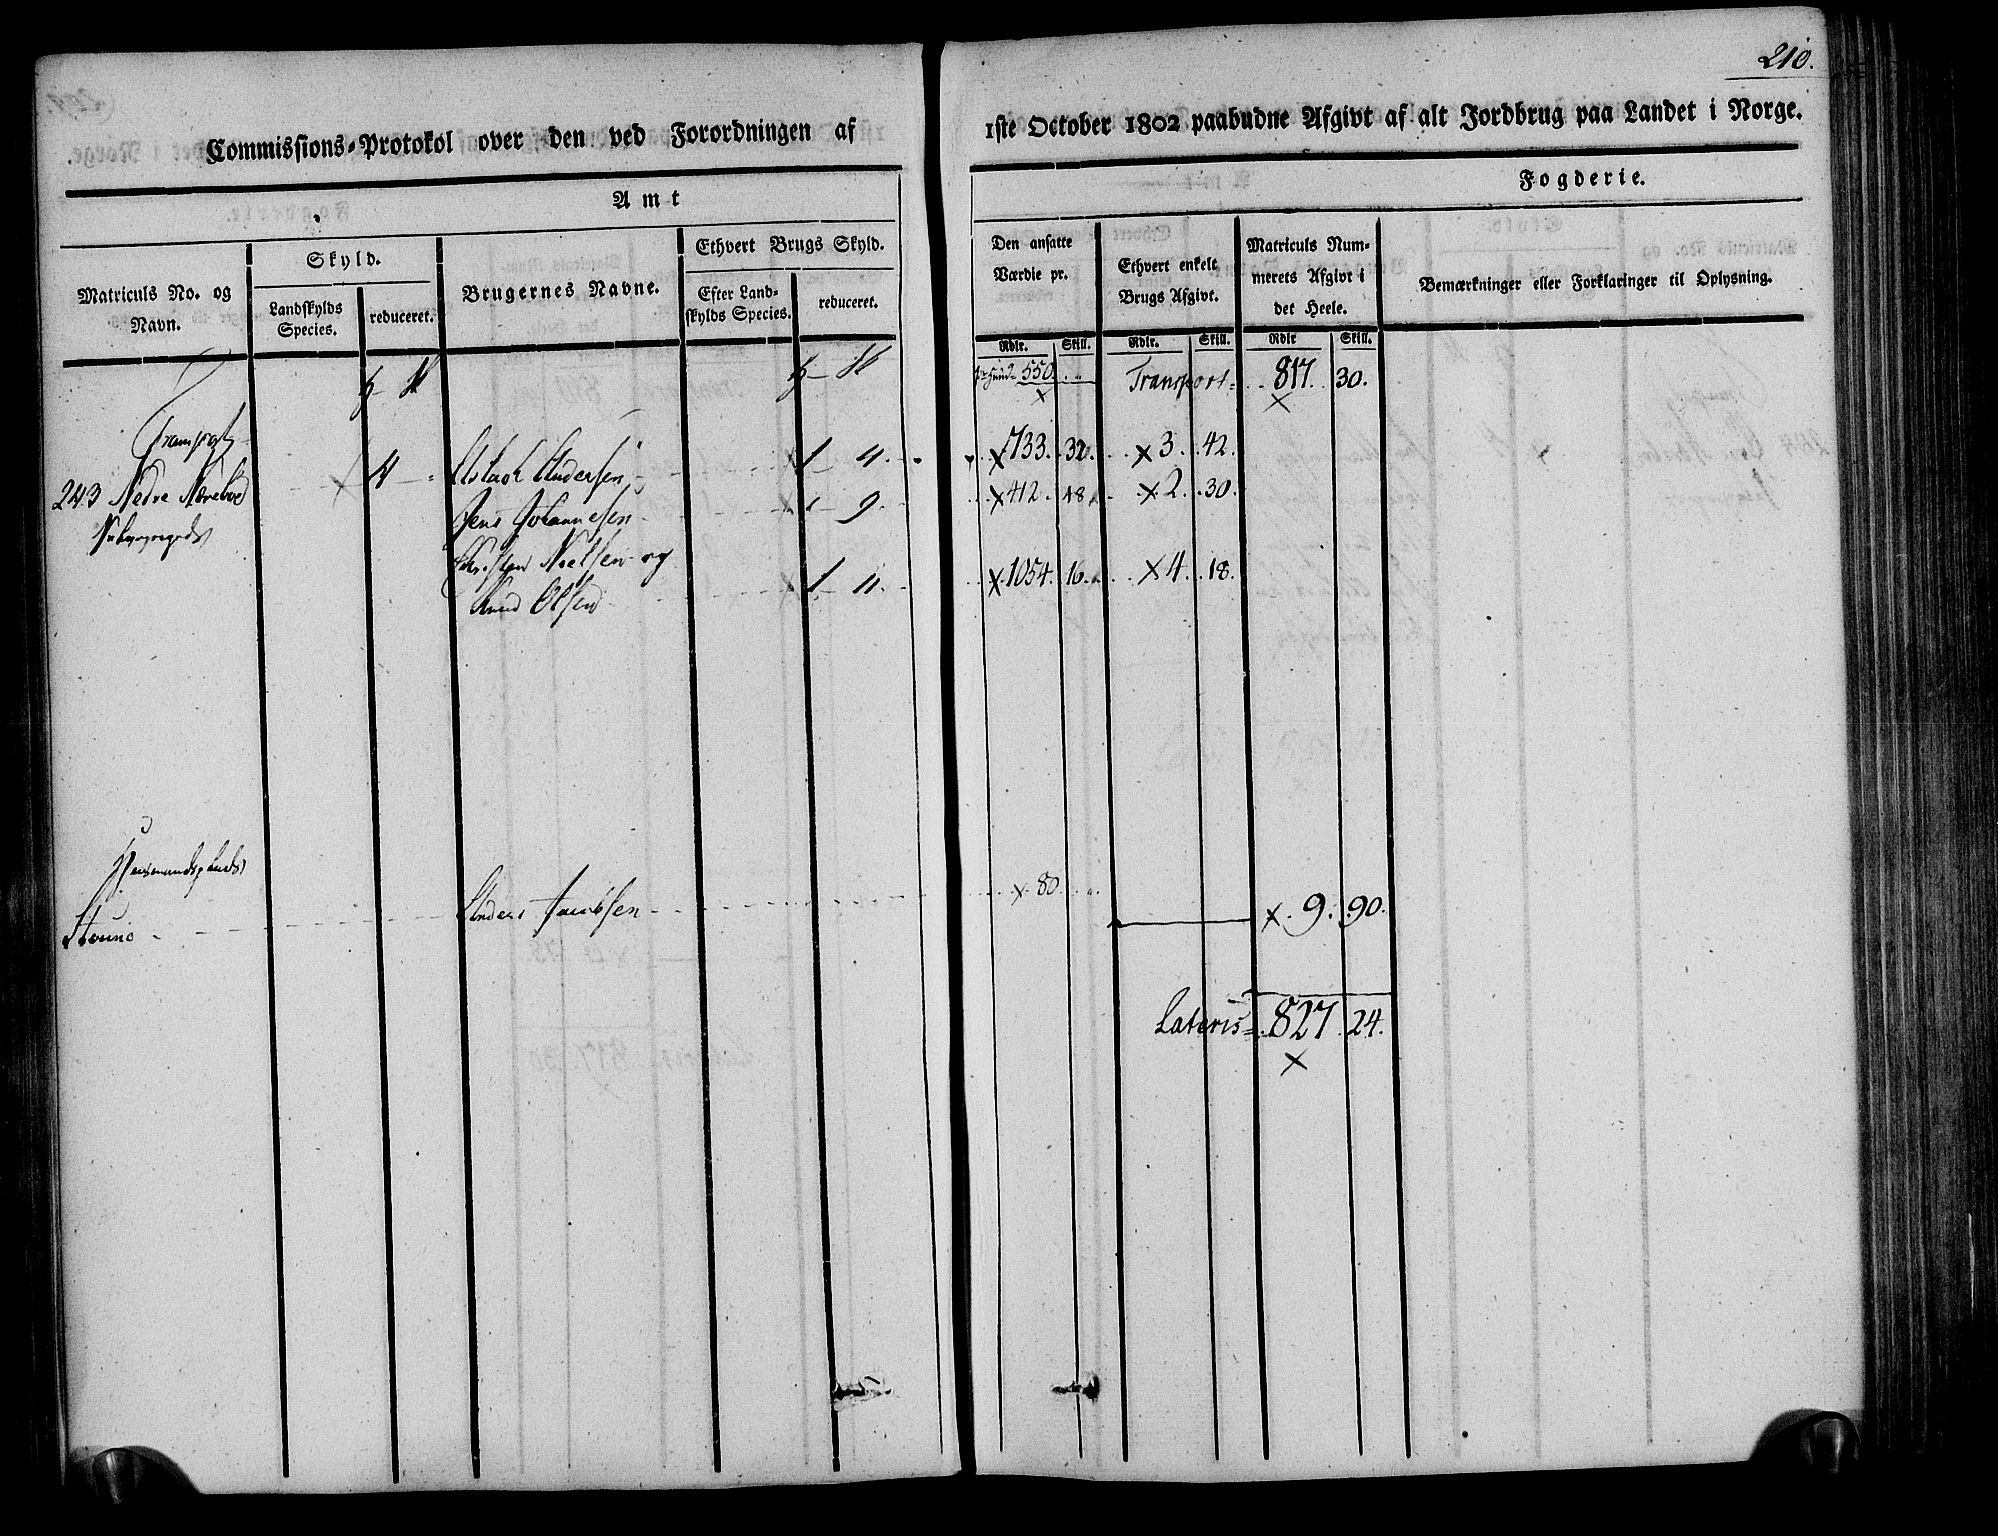 210.
Commissions-Protokol over den ved Forordningen af 1ste October 1802 paabudne Afgivt af alt Jordbrug paa Landet i Norge.
Amt
Fogderie.
Matriculs No. og Navn.
Skyld.
Landskylds Species.
reduceret.
Brugernes Navne.
Ethvert Brugs Skyld.
Efter Landskylds Species.
reduceret.
Den ansatte Værdie pr.
Ethvert enkelt Brugs Afgivt.
Matriculs Nummerets Afgivt i det Heele.
Bemærkninger eller Forklaringer til Oplysning.
Rdlr. Skill. Rdlr. Skill. Rdlr Skill.
550. Transport 817. 30.
Transport
243 Nedre 4 Aslach Andersen 1 4. 733. 32. 3. 42.
Jens Johannesen 9. 412. 48. 2. 30.
Christen Nielsen og
Knud Olsen 1. 11. 1054. 16. 4. 18.
Huusmandsplads
Anders Jacobsen 80. 9. 90.
Lateris 827. 24.